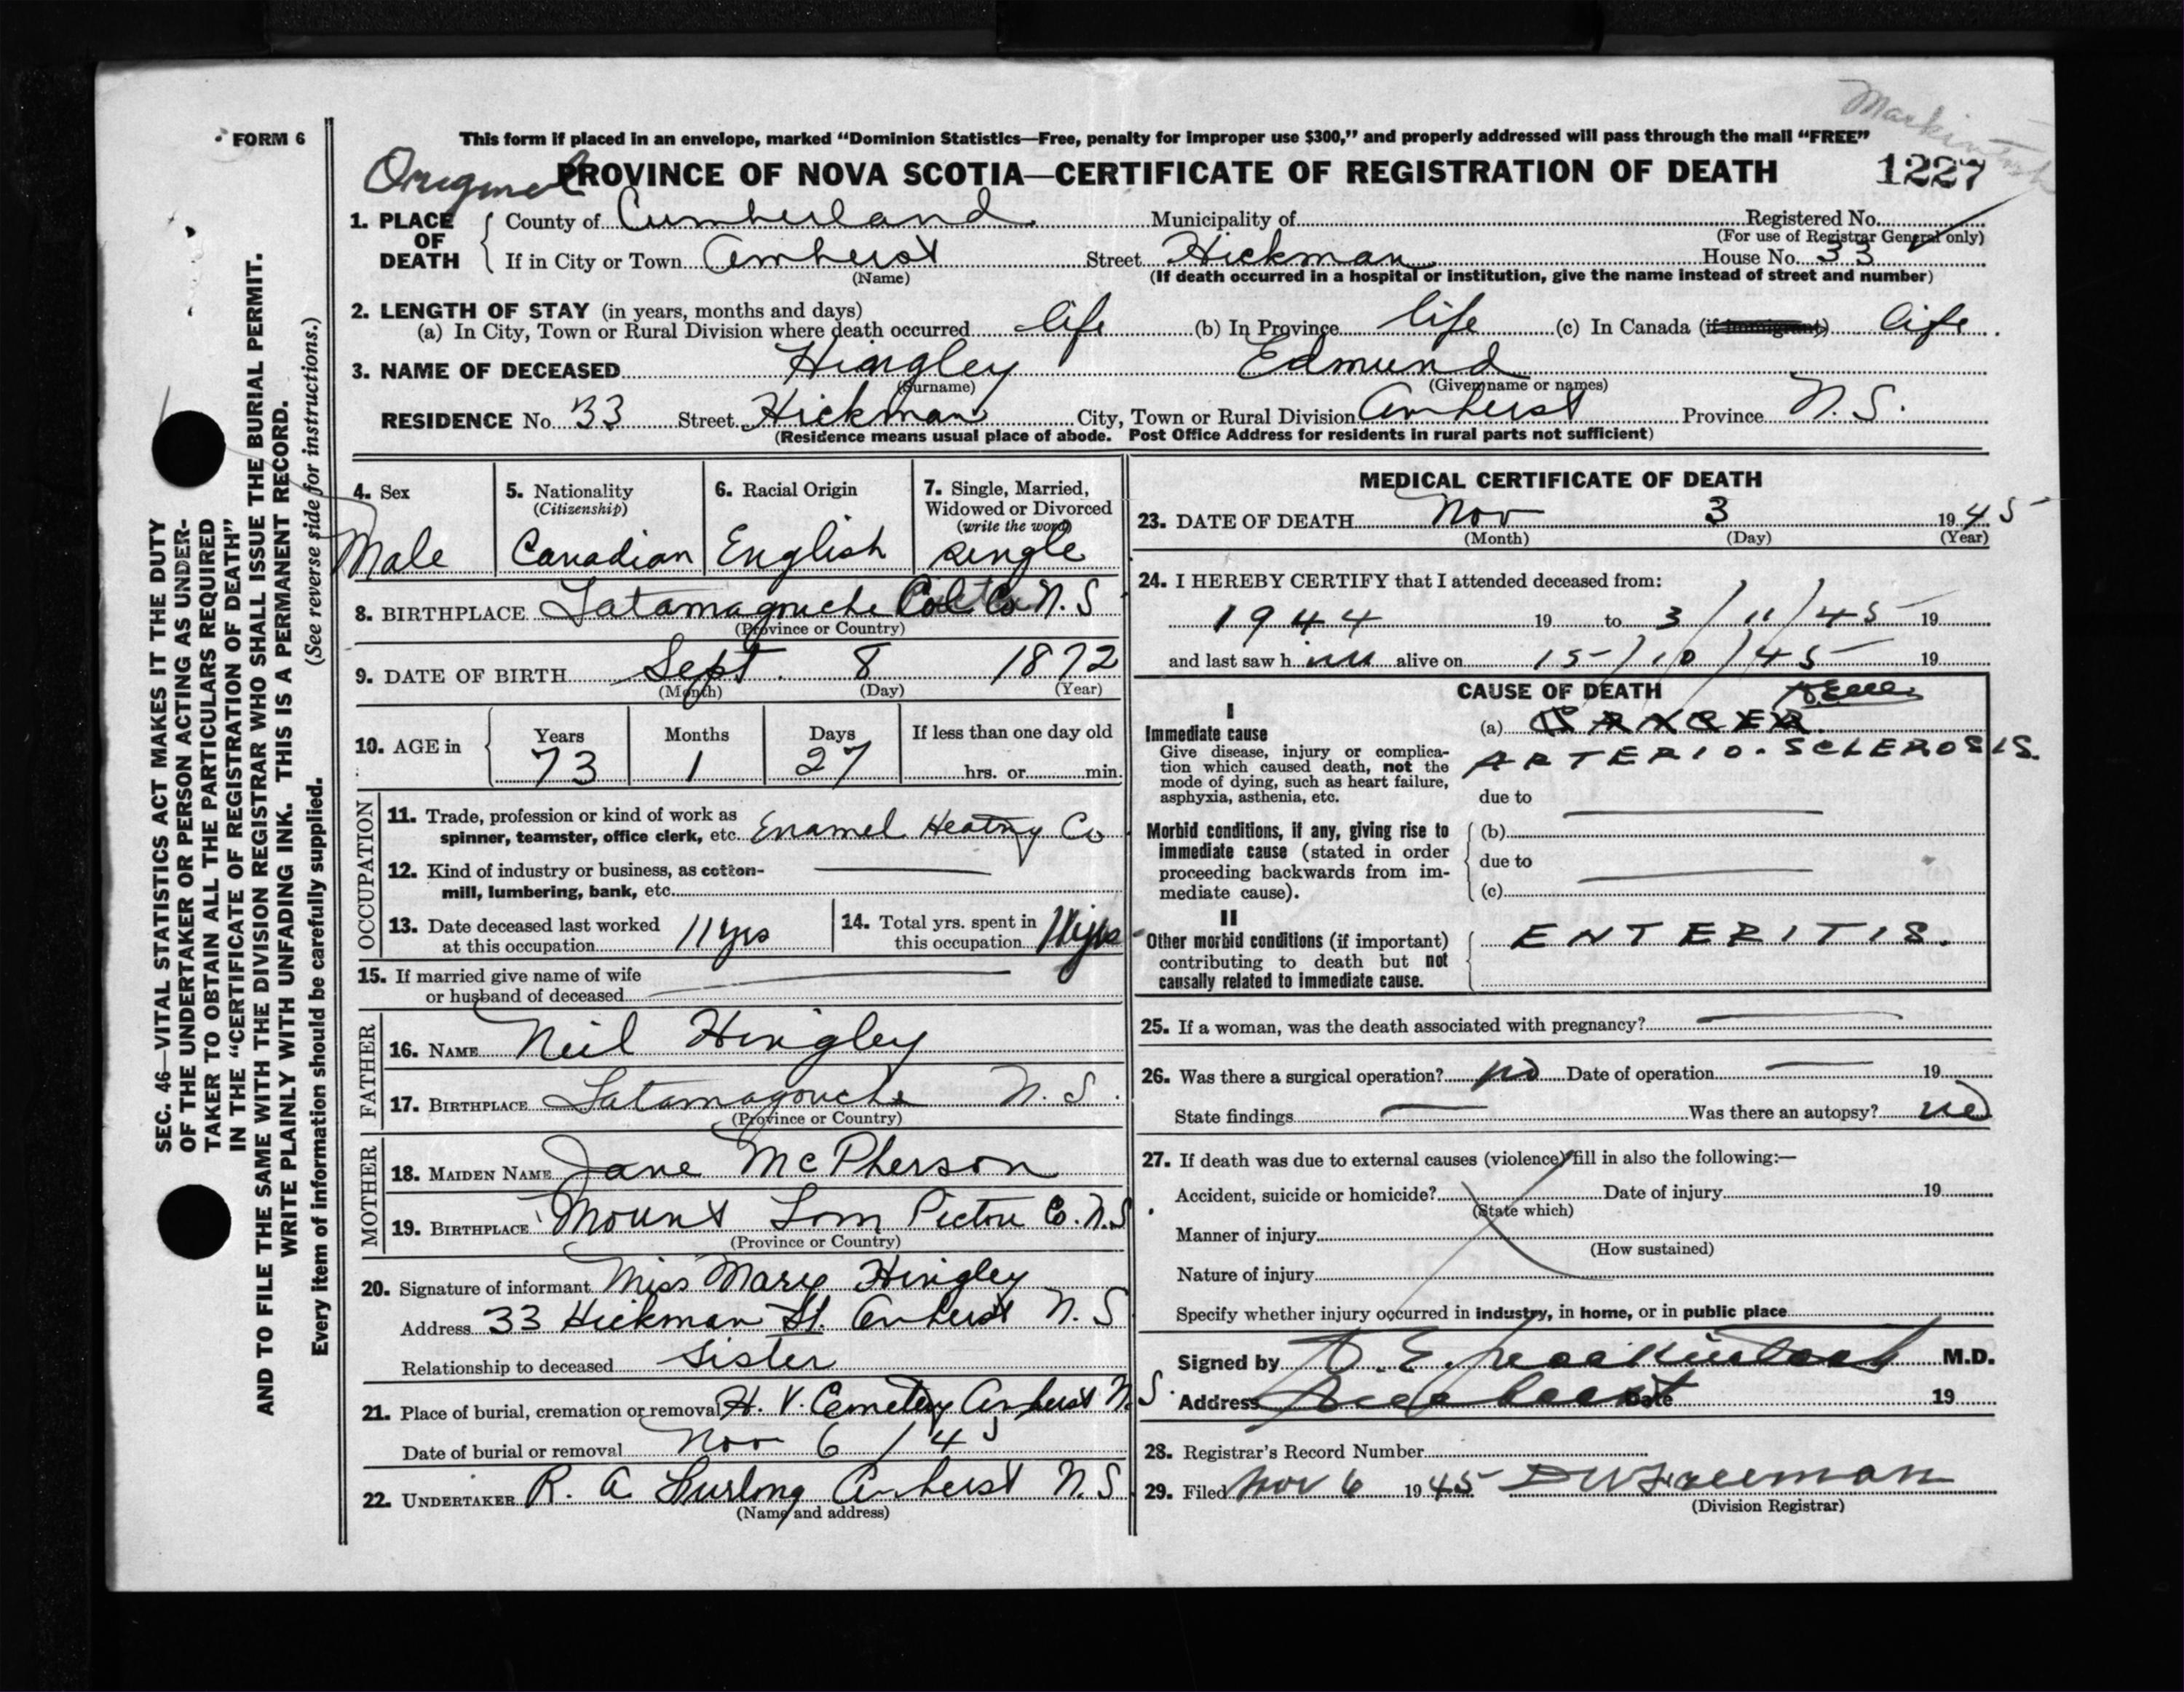 Mackintosh
FORM 6
This form if placed in an envelope, marked “Dominion Statistics—Free, penalty for improper use $300,” and properly addressed will pass through the mail “FREE”
Original PROVINCE OF NOVA SCOTIA—CERTIFICATE OF REGISTRATION OF DEATH 1227
1. PLACE OF DEATH County of Cumberland Municipality of Registered No.
(For use of Registrar General only)
If in City or Town Amherst Street Hickman House No. 33
(Name) (If death occurred in a hospital or institution, give the name instead of street and number)
2. LENGTH OF STAY (in years, months and days)
(a) In City, Town or Rural Division where death occurred life (b) In Province life (c) In Canada (if immigrant) life
3. NAME OF DECEASED Hingley Edmund
(Surname) (Given name or names)
RESIDENCE No. 33 Street Hickman City, Town or Rural Division Amherst Province N.S.
(Residence means usual place of abode. Post Office Address for residents in rural parts not sufficient)
4. Sex Male
5. Nationality (Citizenship) Canadian
6. Racial Origin English
7. Single, Married, Widowed or Divorced (write the word) single
8. BIRTHPLACE Tatamagouche Col Co N.S
(Province or Country)
9. DATE OF BIRTH Sept. 8 1872
(Month) (Day) (Year)
10. AGE in Years 73 Months 1 Days 27 If less than one day old hrs. or min.
OCCUPATION
11. Trade, profession or kind of work as
spinner, teamster, office clerk, etc. Enamel Heating Co
12. Kind of industry or business, as cotton-
mill, lumbering, bank, etc.
13. Date deceased last worked at this occupation 11 yrs
14. Total yrs. spent in this occupation
15. If married give name of wife
or husband of deceased
FATHER
16. NAME Neil Hingley
17. BIRTHPLACE Tatamagouche N.S.
(Province or Country)
MOTHER
18. MAIDEN NAME Jane McPherson
19. BIRTHPLACE Mount Tom Pictou Co. N.S
(Province or Country)
20. Signature of informant Miss Mary Hingley
Address 33 Hickman St. Amherst N.S
Relationship to deceased sister
21. Place of burial, cremation or removal H. V. Cemetery Amherst N.S.
Date of burial or removal Nov 6 / 45
22. UNDERTAKER R. A. Furlong Amherst N.S
(Name and address)
MEDICAL CERTIFICATE OF DEATH
23. DATE OF DEATH Nov 3 1945
(Month) (Day) (Year)
24. I HEREBY CERTIFY that I attended deceased from:
1944 19 to 3/11/45 19
and last saw him alive on 15/10/45 19
CAUSE OF DEATH
I
Immediate cause
Give disease, injury or complica-
tion which caused death, not the
mode of dying, such as heart failure,
asphyxia, asthenia, etc.
(a) CANCER
ARTERIO-SCLEROSIS.
due to
Morbid conditions, if any, giving rise to
immediate cause (stated in order
proceeding backwards from im-
mediate cause).
(b)
due to
(c)
II
Other morbid conditions (if important)
contributing to death but not
causally related to immediate cause.
ENTERITIS.
25. If a woman, was the death associated with pregnancy?
26. Was there a surgical operation? no Date of operation 19
State findings Was there an autopsy? no
27. If death was due to external causes (violence) fill in also the following:—
Accident, suicide or homicide? Date of injury 19
(State which)
Manner of injury
(How sustained)
Nature of injury
Specify whether injury occurred in industry, in home, or in public place
Signed by D. E. Mackintosh M.D.
Address Amherst Date 19
28. Registrar's Record Number
29. Filed Nov 6 1945
(Division Registrar)
SEC. 46—VITAL STATISTICS ACT MAKES IT THE DUTY
OF THE UNDERTAKER OR PERSON ACTING AS UNDER-
TAKER TO OBTAIN ALL THE PARTICULARS REQUIRED
IN THE “CERTIFICATE OF REGISTRATION OF DEATH”
AND TO FILE THE SAME WITH THE DIVISION REGISTRAR WHO SHALL ISSUE THE BURIAL PERMIT.
WRITE PLAINLY WITH UNFADING INK. THIS IS A PERMANENT RECORD.
Every item of information should be carefully supplied. (See reverse side for instructions.)